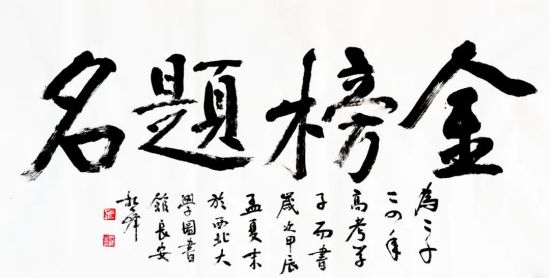 金榜题名
為二千
二四年
高考學
子而書
歲次甲辰
孟夏末
於西北大
學圖書
館長安